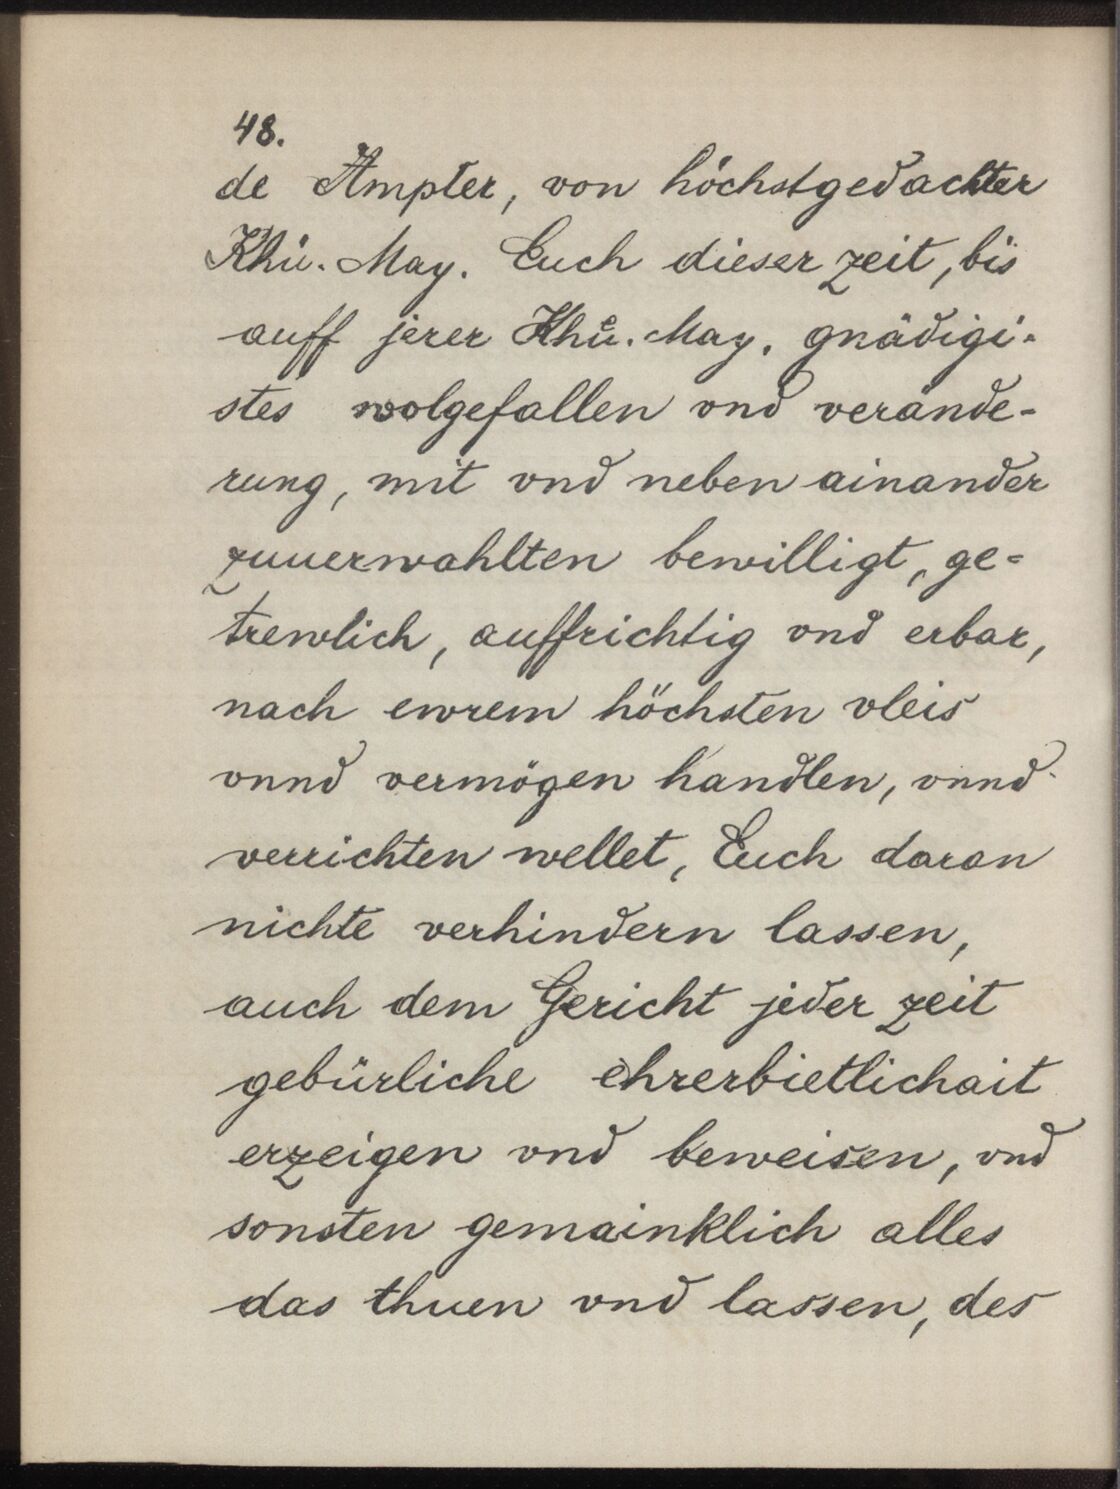 48.
de Ämpter, von höchstgedachter
Khü. May. Euch dieser zeit, bis
auff jerer Khü. May. gnädigi-
stes wolgefallen vnd verände-
rung, mit vnd neben ainander
zuuerwahlten bewilligt, ge-
trewlich, auffrichtig vnd erbar,
nach ewrem höchsten vleis
vnnd vermögen handlen, vnnd
verrichten wellet, Euch daran
nichte verhindern lassen,
auch dem Gericht jeder zeit
gebürliche ehrerbietlichait
erzeigen vnd beweisen, vnd
sonsten gemainklich alles
das thuen vnd lassen, des